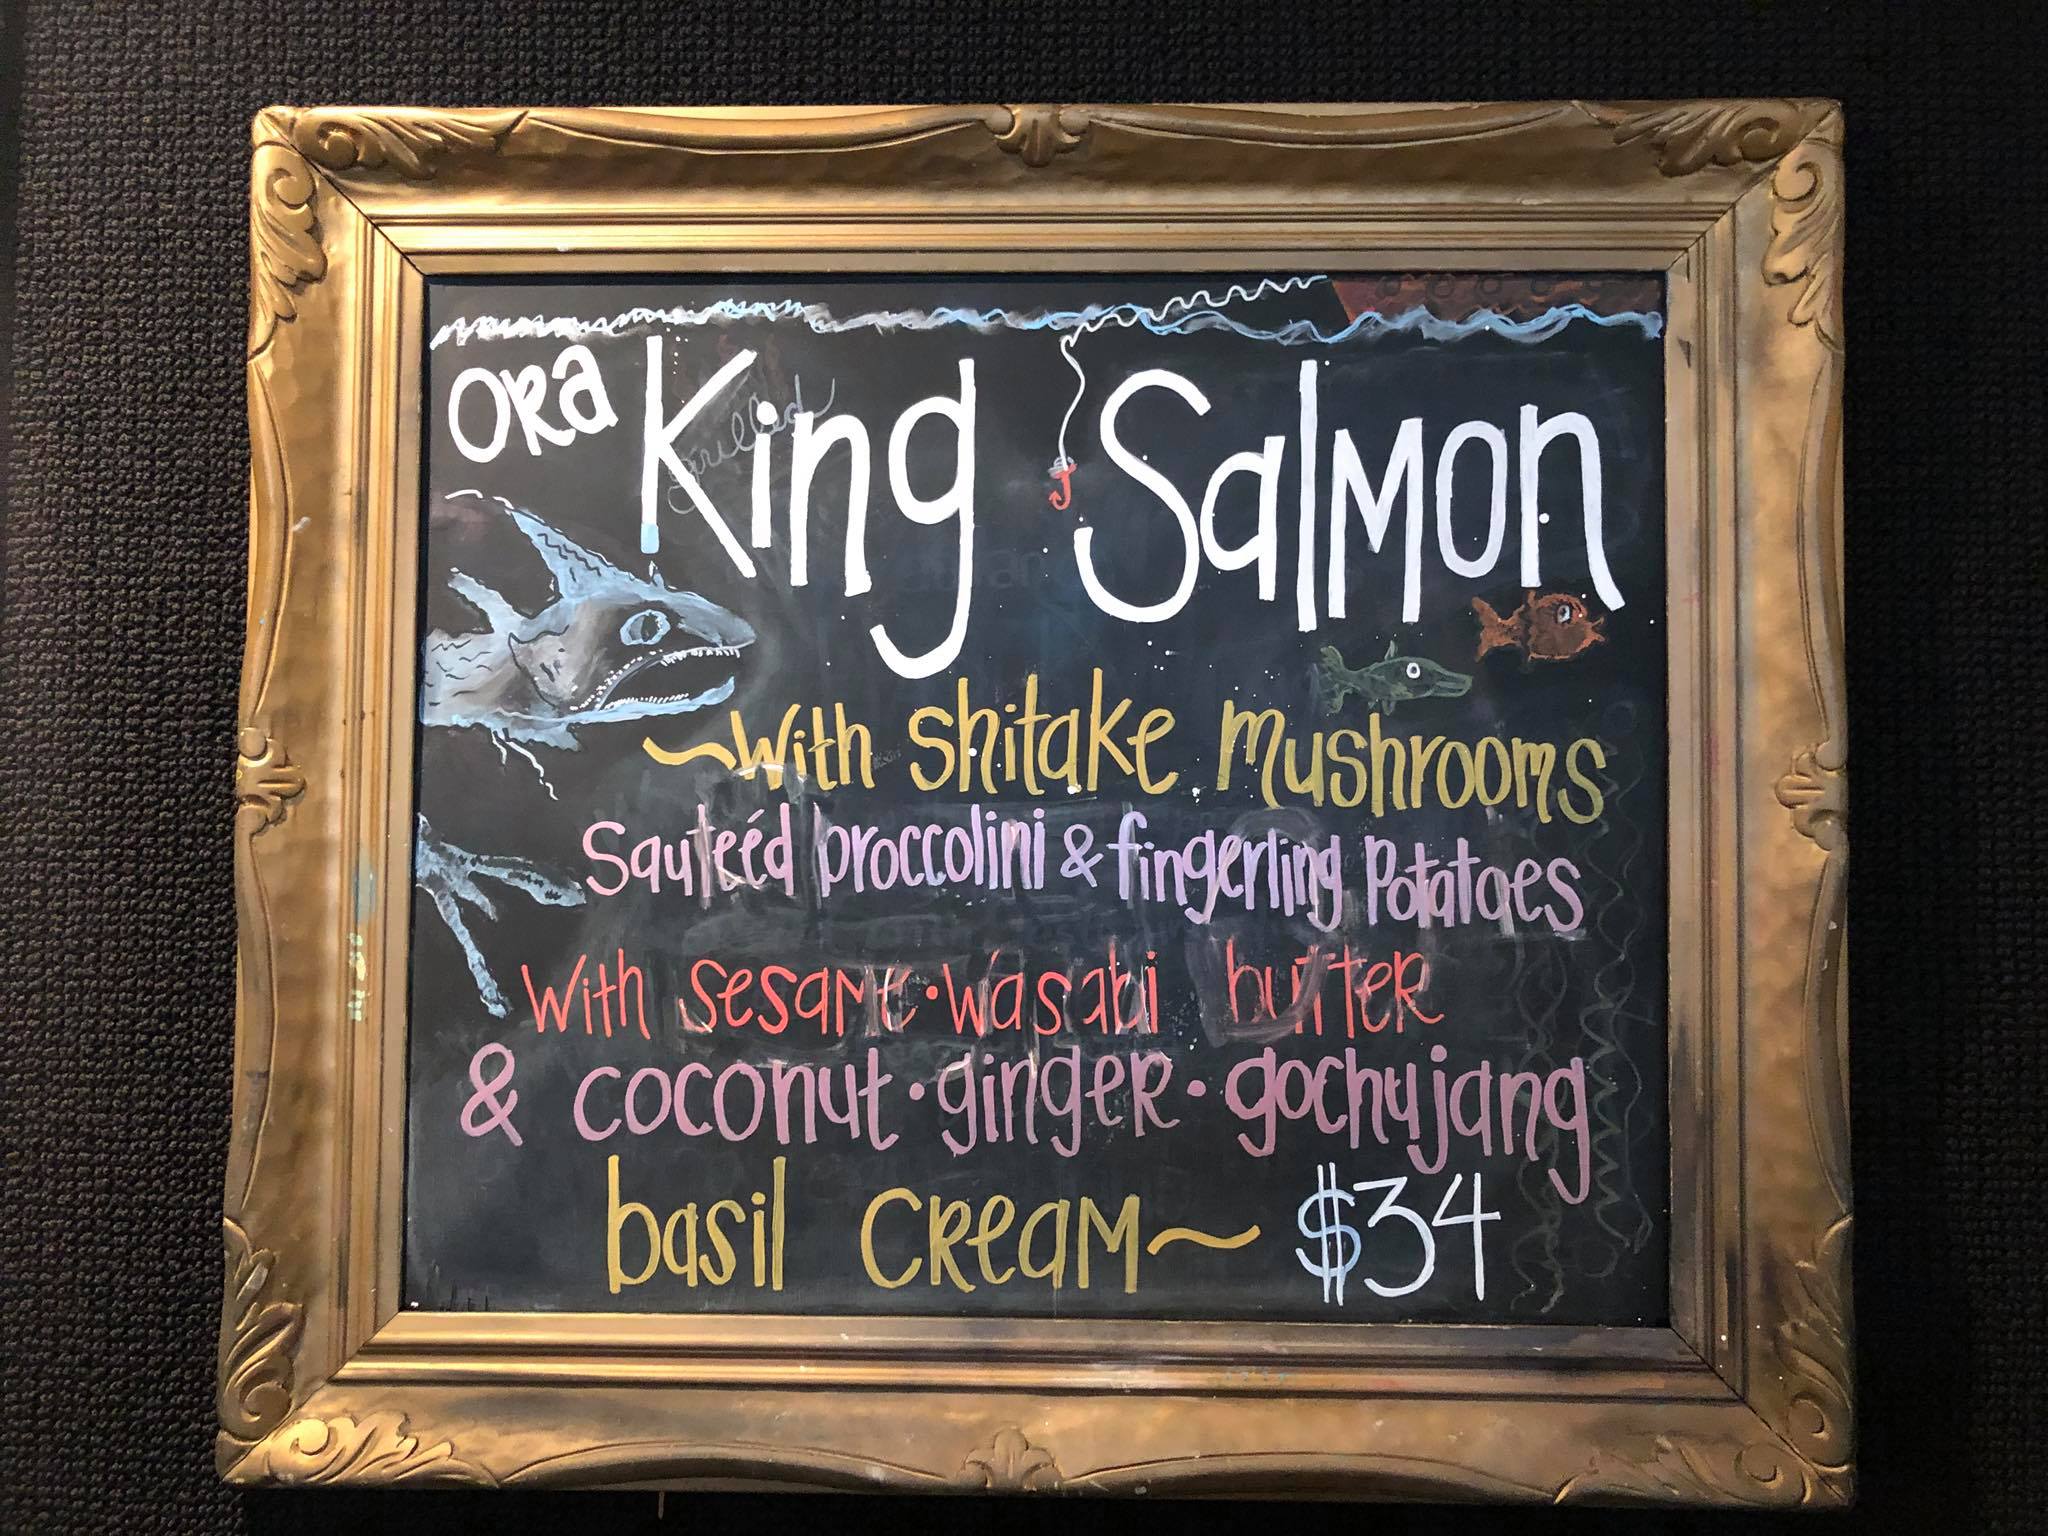 ORa King Salmon
grilled
~With shitake mushrooms
Sauteéd broccolini & fingerling Potatoes
With sesame・wasabi butter
& coconut・ginger・gochujang
basil cream~ $34